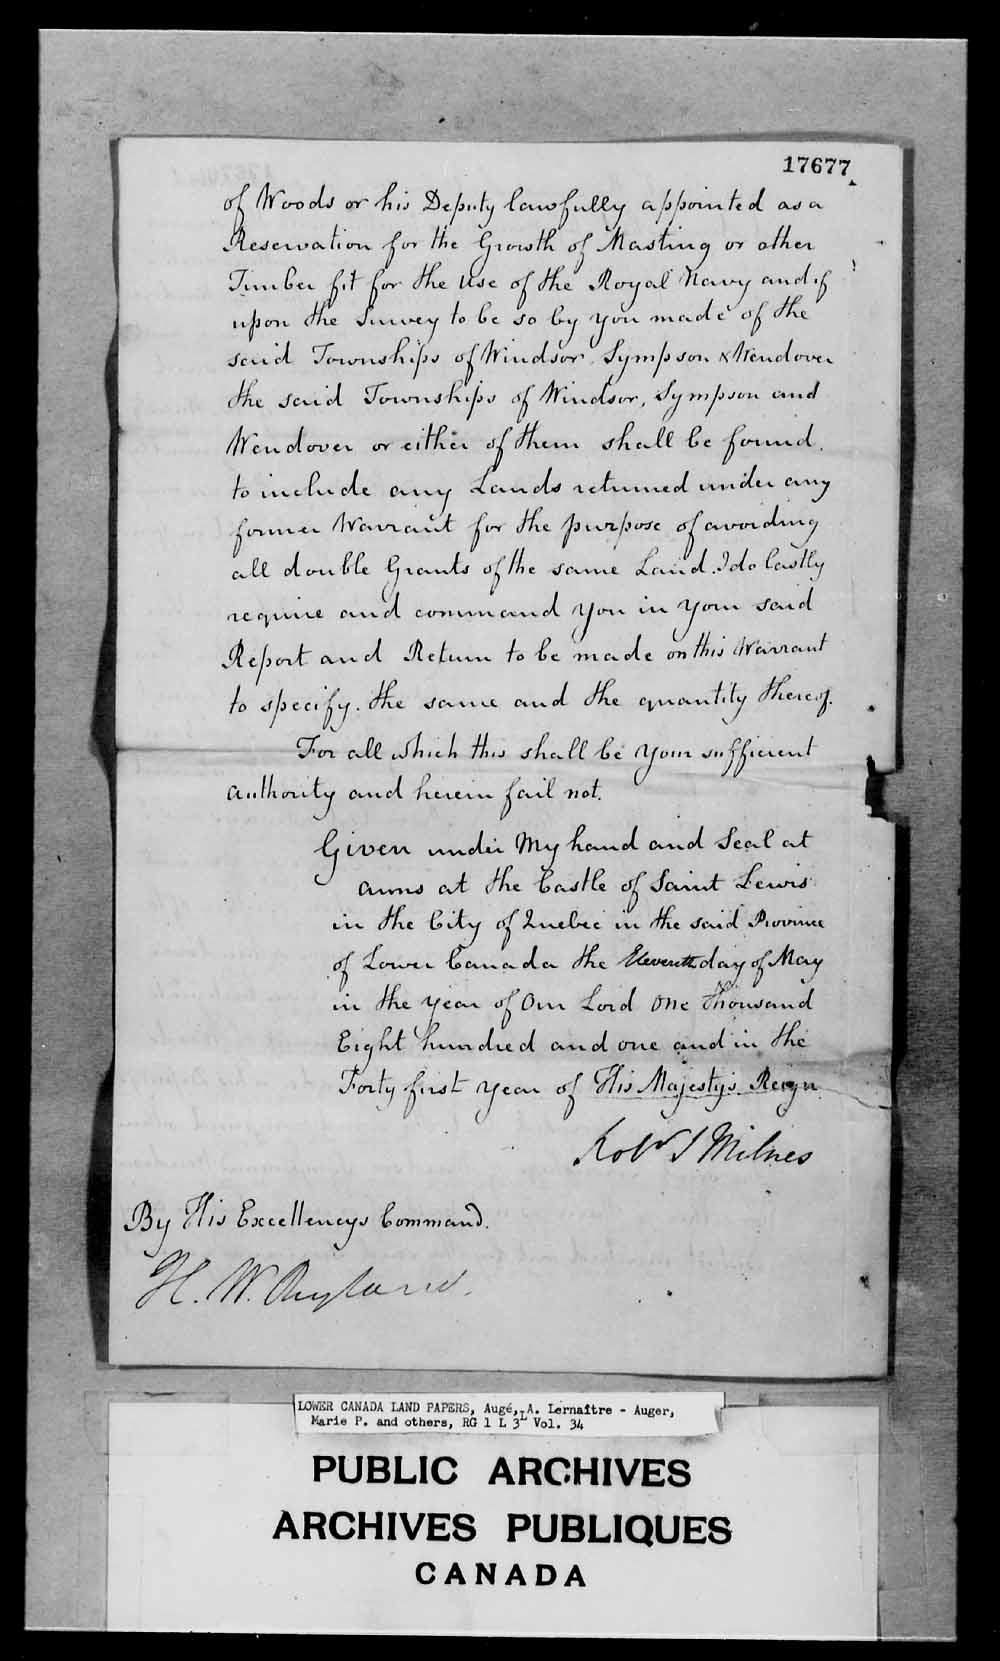 17677
of Woods or his Deputy lawfully appointed as a
Reservation for the Growth of Masting or other
Timber fit for the Use of the Royal Navy and if
upon the Survey to be so by you made of the
said Townships of Windsor, Sympson & Wendover
the said Townships of Windsor, Sympson and
Wendover or either of them shall be found
to include any Lands returned under any
former Warrant for the purpose of avoiding
all double Grants of the same Land. I do lastly
require and command you in your said
Report and Return to be made on this Warrant
to specify. the same and the quantity thereof.
For all which this shall be your sufficient
authority and herein fail not.
Given under My hand and Seal at
arms at the Castle of Saint Lewis
in the City of Quebec in the said Province
of Lower Canada the Eleventh day of May
in the year of Our Lord One Thousand
Eight hundred and one and in the
Forty first year of His Majesty's Reign.
Robt S Milnes
By His Excellencys Command.
H. W. Ryland.
LOWER CANADA LAND PAPERS, Augé, A. Lemaître - Auger,
Marie P. and others, RG 1 L 3L Vol. 34
PUBLIC ARCHIVES
ARCHIVES PUBLIQUES
CANADA